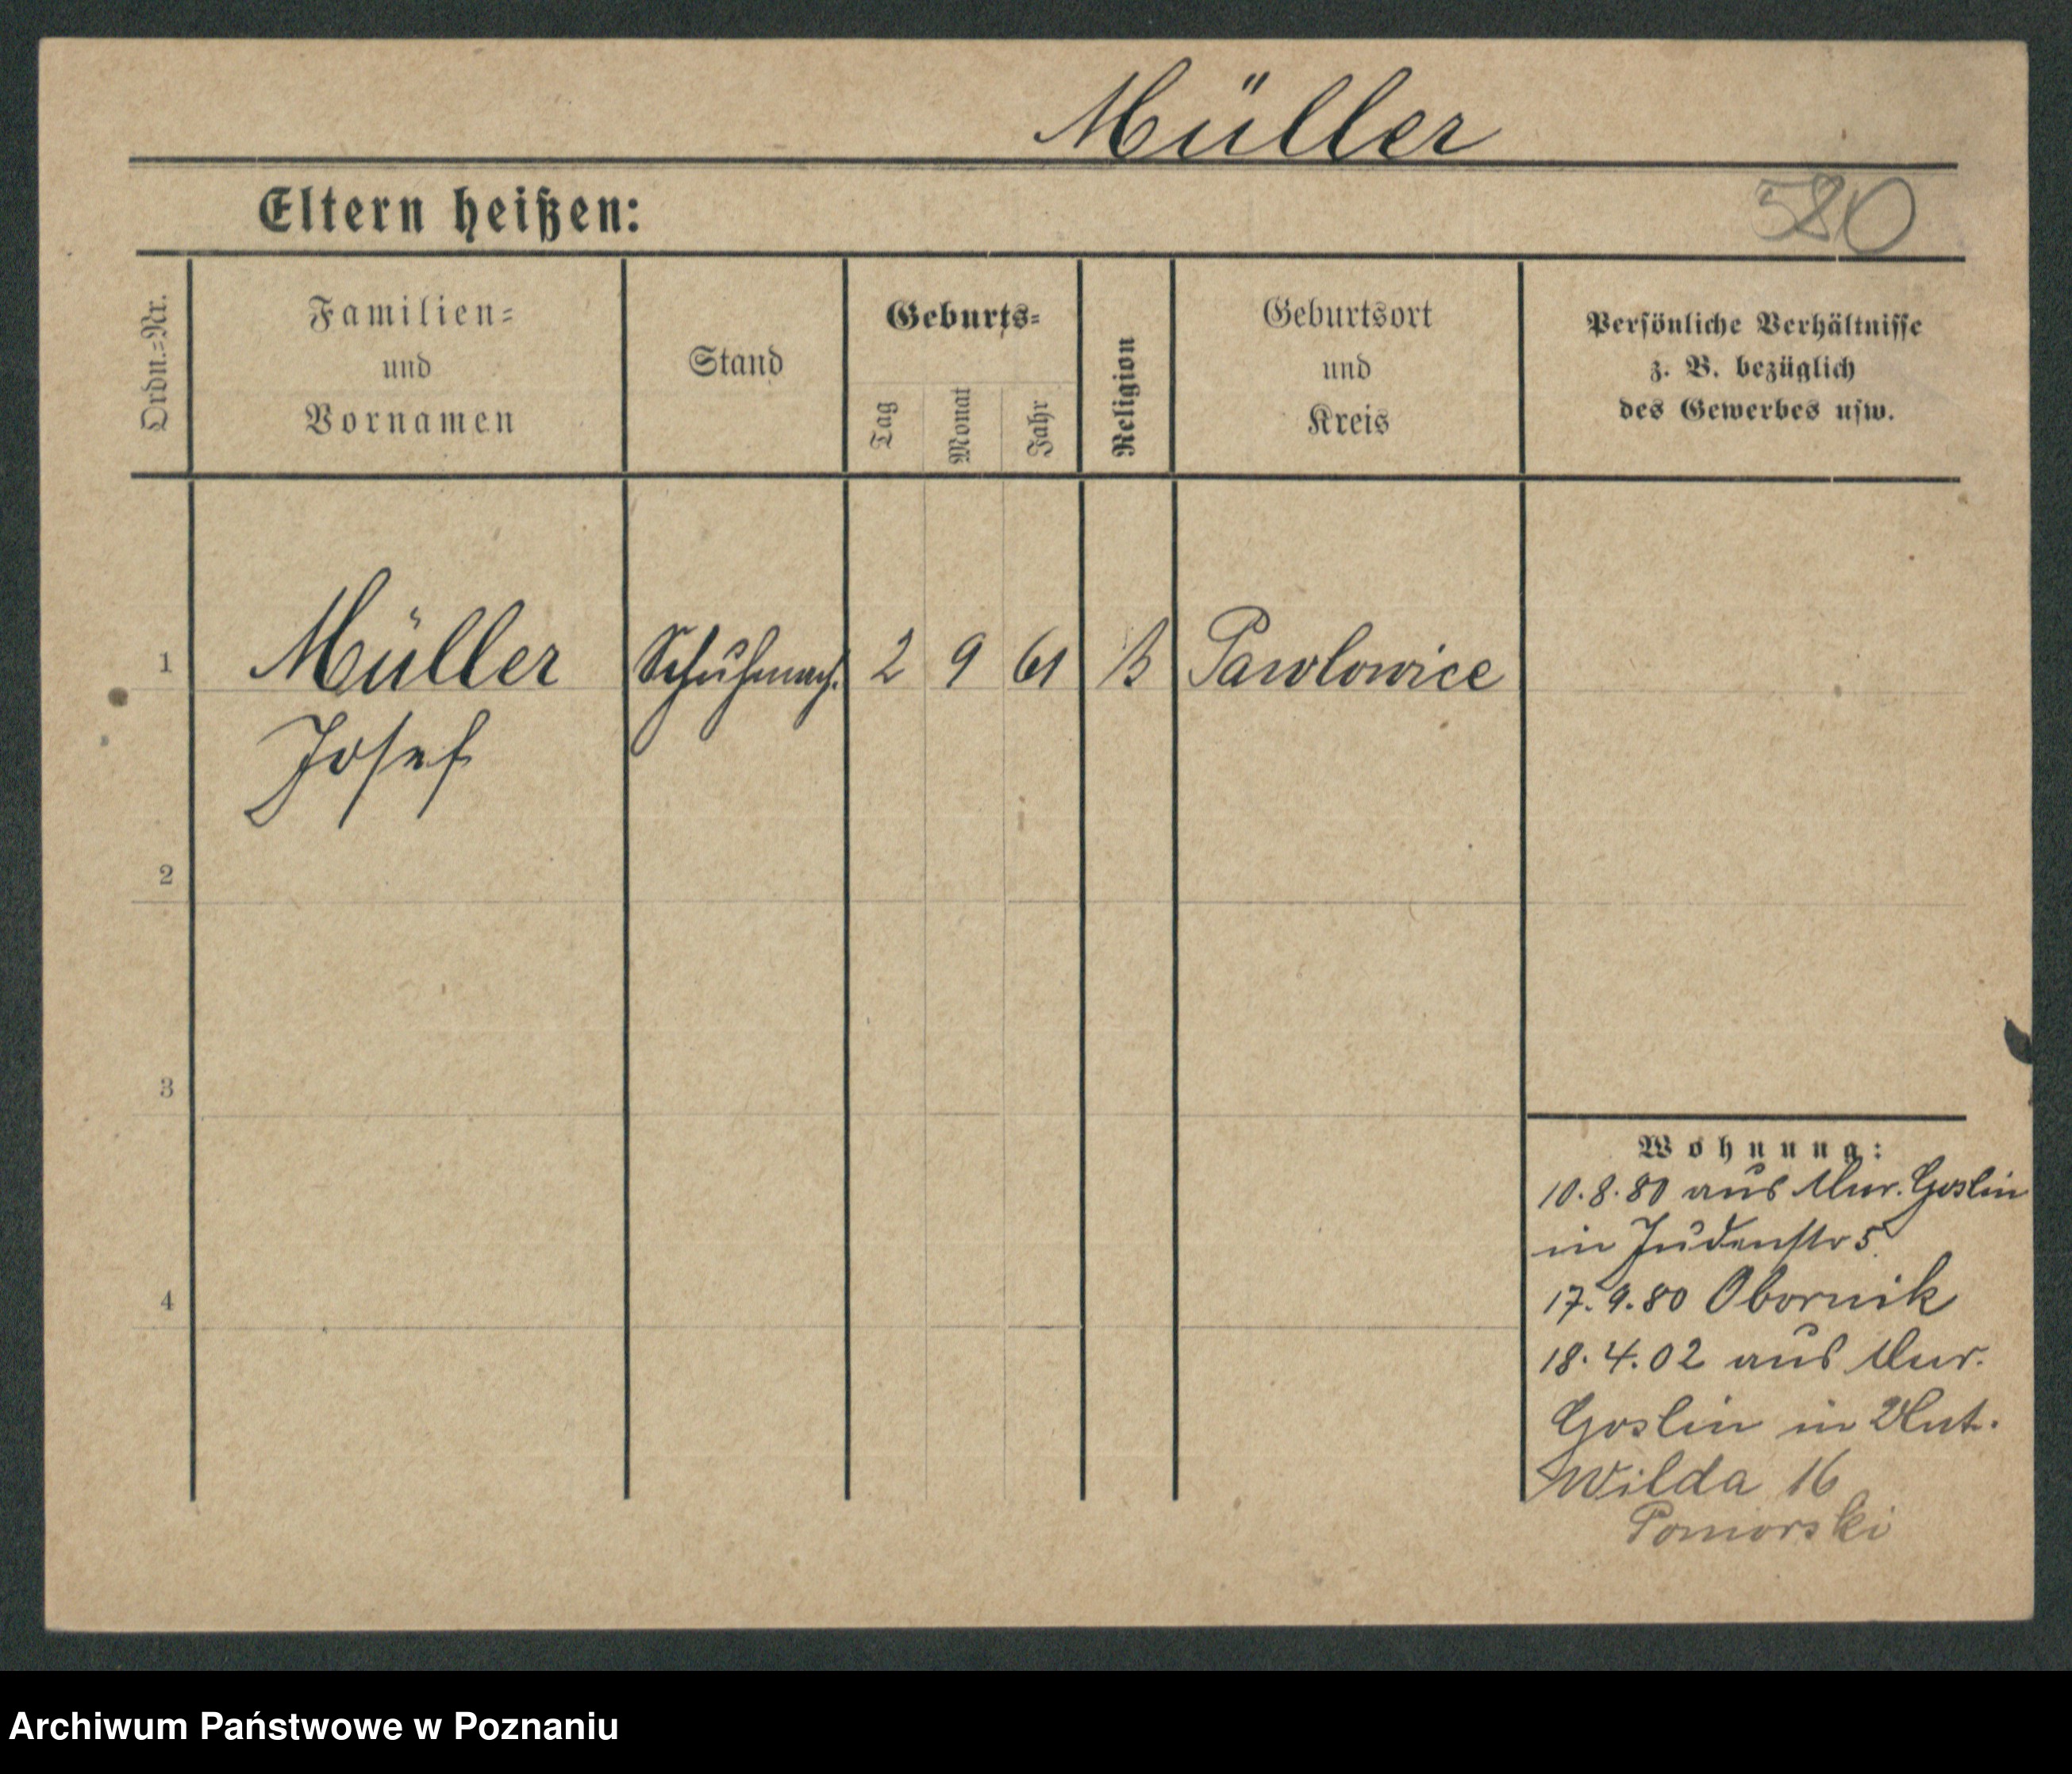 Müller
Eltern heißen:
580
Ordn.-Nr.
Familien-
und
Vornamen
Stand
Geburts-
Tag
Monat
Jahr
Religion
Geburtsort
und
Kreis
Persönliche Verhältnisse
z. B. bezüglich
des Gewerbes usw.
1 Müller Schuhmach. 2 9 61 Pawlowice
Josef
2
3
4
Wohnung:
10.8.80 aus Mur. Goslin
in Judenstr 5.
17.9.80 Obornik
18.4.02 aus Mur.
Goslin in Unt.
Wilda 16
Pomorski
Archiwum Państwowe w Poznaniu